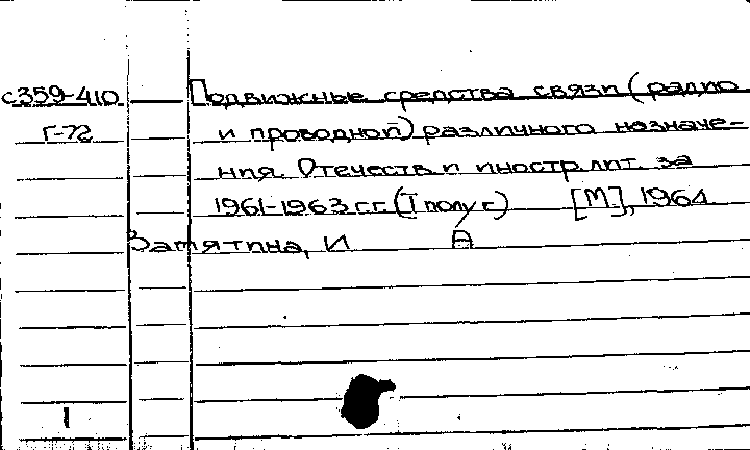 с359-410 Подвижные средства связи (радио
Г-72 и проводной) различного назначе-
ния. Отечеств и иностр лит. за
1961-1963 г.г. (I полуг) [М.], 1964
Замятина, И А
1